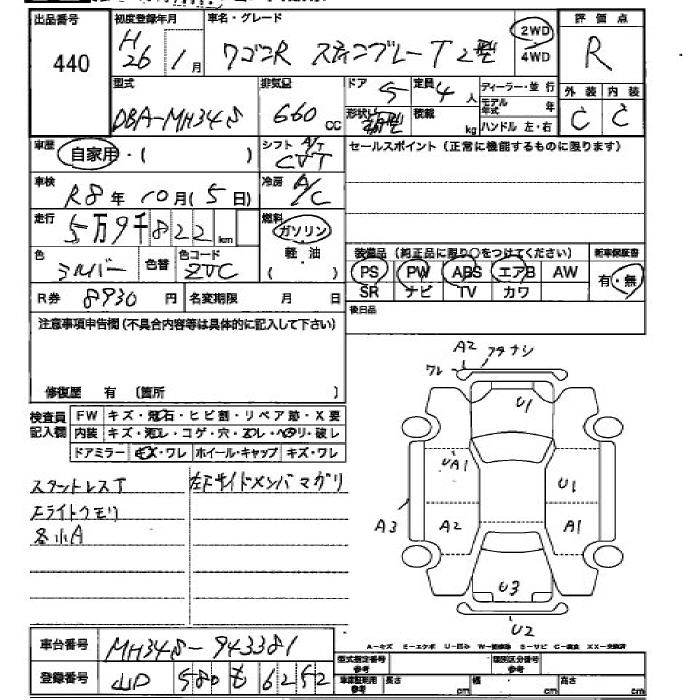 出品番号
440
初度登録年月
H26年 1月
車名・グレード
ワゴンR スティングレーT 2型
2WD
4WD
評価点
R
型式
DBA-MH34S
排気量
660 cc
ドア
5
定員
4人
形状
箱型
積載
kg
ディーラー・並行
モデル年式 年
ハンドル 左・右
外装
C
内装
C
車歴
自家用・( )
シフト
A/T
CVT
セールスポイント(正常に機能するものに限ります)
車検
R8年 10月(5日)
冷房
A/C
走行
5万9千822km
燃料
ガソリン
軽・油
( )
色
シルバー
色替
色コード
Z2C
装備品(純正品に限り○をつけてください)
新車保証書
PS PW ABS エアB AW
有・無
SR ナビ TV カワ
R券 8930円
名変期限 月 日
後日品
注意事項申告欄(不具合内容等は具体的に記入して下さい)
修復歴 有 〔箇所 〕
検査員記入欄
FW キズ・飛石・ヒビ割・リペア跡・X要
内装 キズ・汚レ・コゲ・穴・スレ・ヘタリ・破レ
ドアミラー キズ・ワレ ホイール・キャップ キズ・ワレ
スタットレスT
左F サイドメンバ マガリ
エライトクモリ
各小A
A2
ワレ
フタナシ
U1
UA1
U1
A3
A2
A1
U3
U2
車台番号
MH34S-943381
登録番号
山口 580 も 6252
型式指定番号
参考
類別区分番号
参考
長さ cm
幅 cm
高さ cm